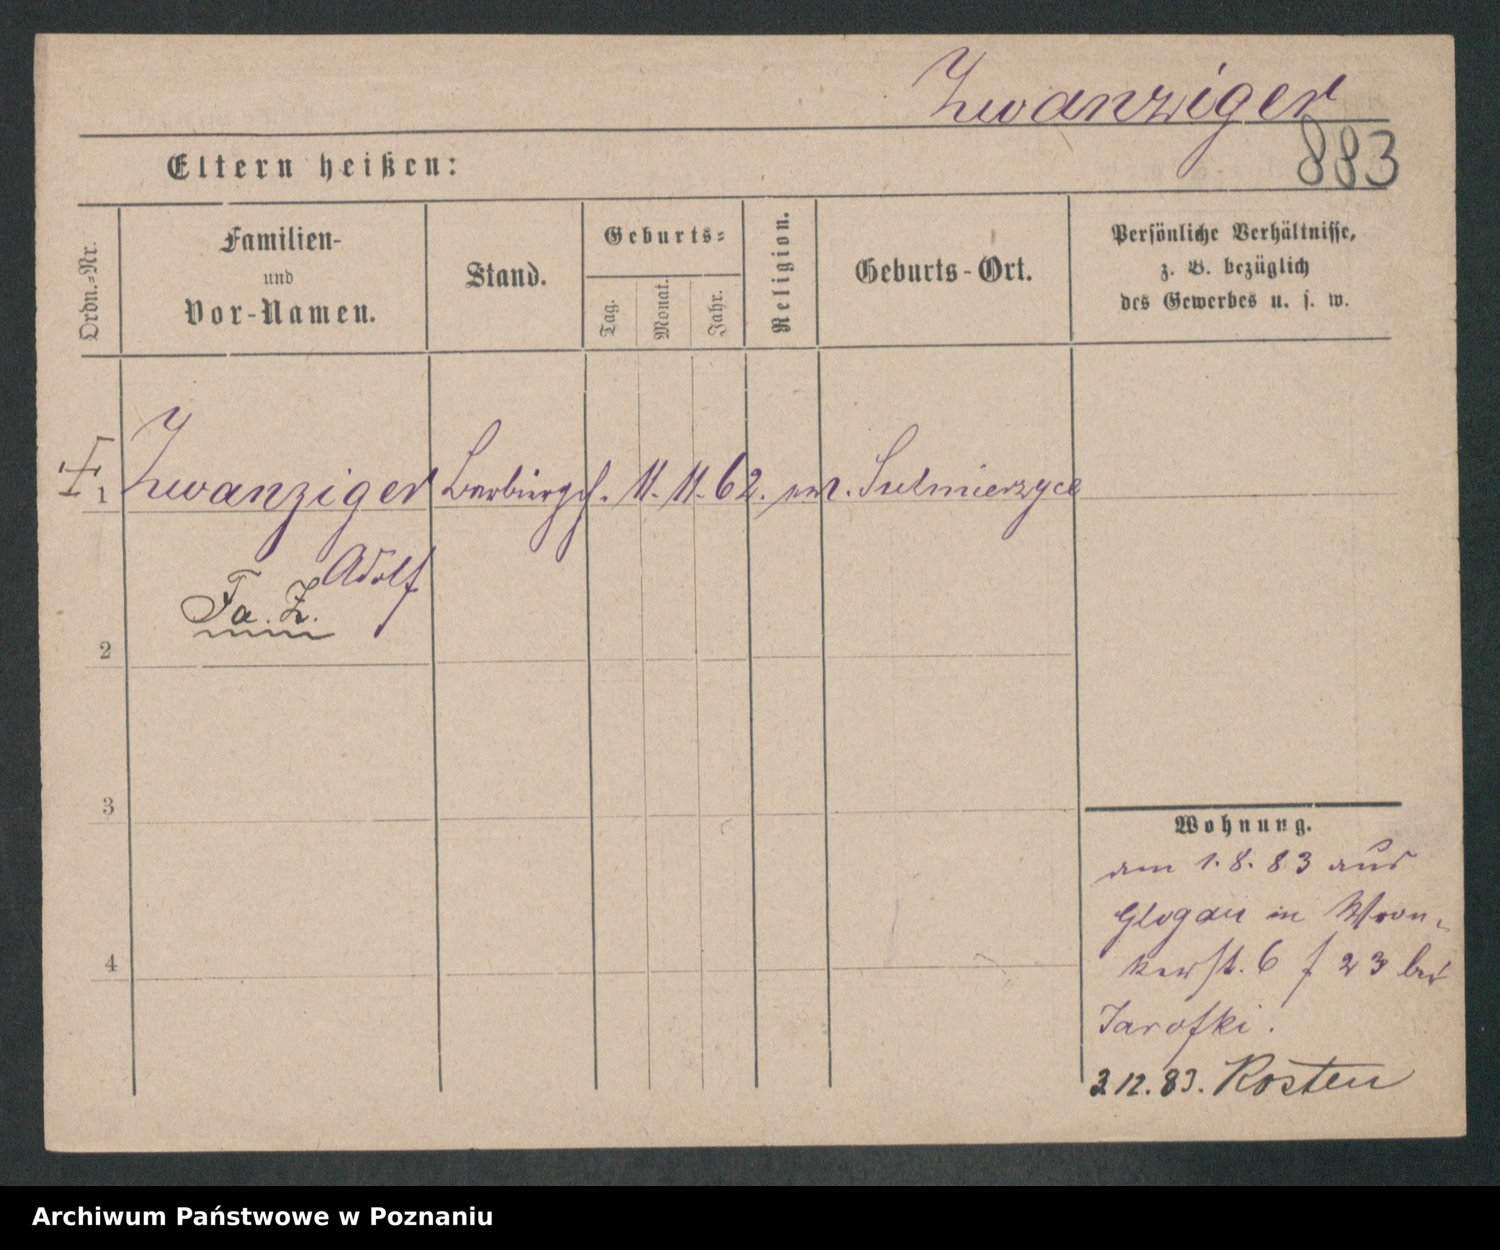 Zwanziger
883
Eltern heißen:
Ordn.-Nr.
Familien-
und
Vor-Namen.
Stand.
Geburts-
Tag.
Monat.
Jahr.
Religion.
Geburts-Ort.
Persönliche Verhältnisse,
z. B. bezüglich
des Gewerbes u. s. w.
1 Zwanziger 11. 11. 62. Sulmierzyce
Adolf
Fa. Z.
2
3
4
Wohnung.
am 1. 8. 83 aus
Glogau in Wron-
kerst. 6 f 23 bei
Jarofki.
3.12.83. Kosten
Archiwum Państwowe w Poznaniu